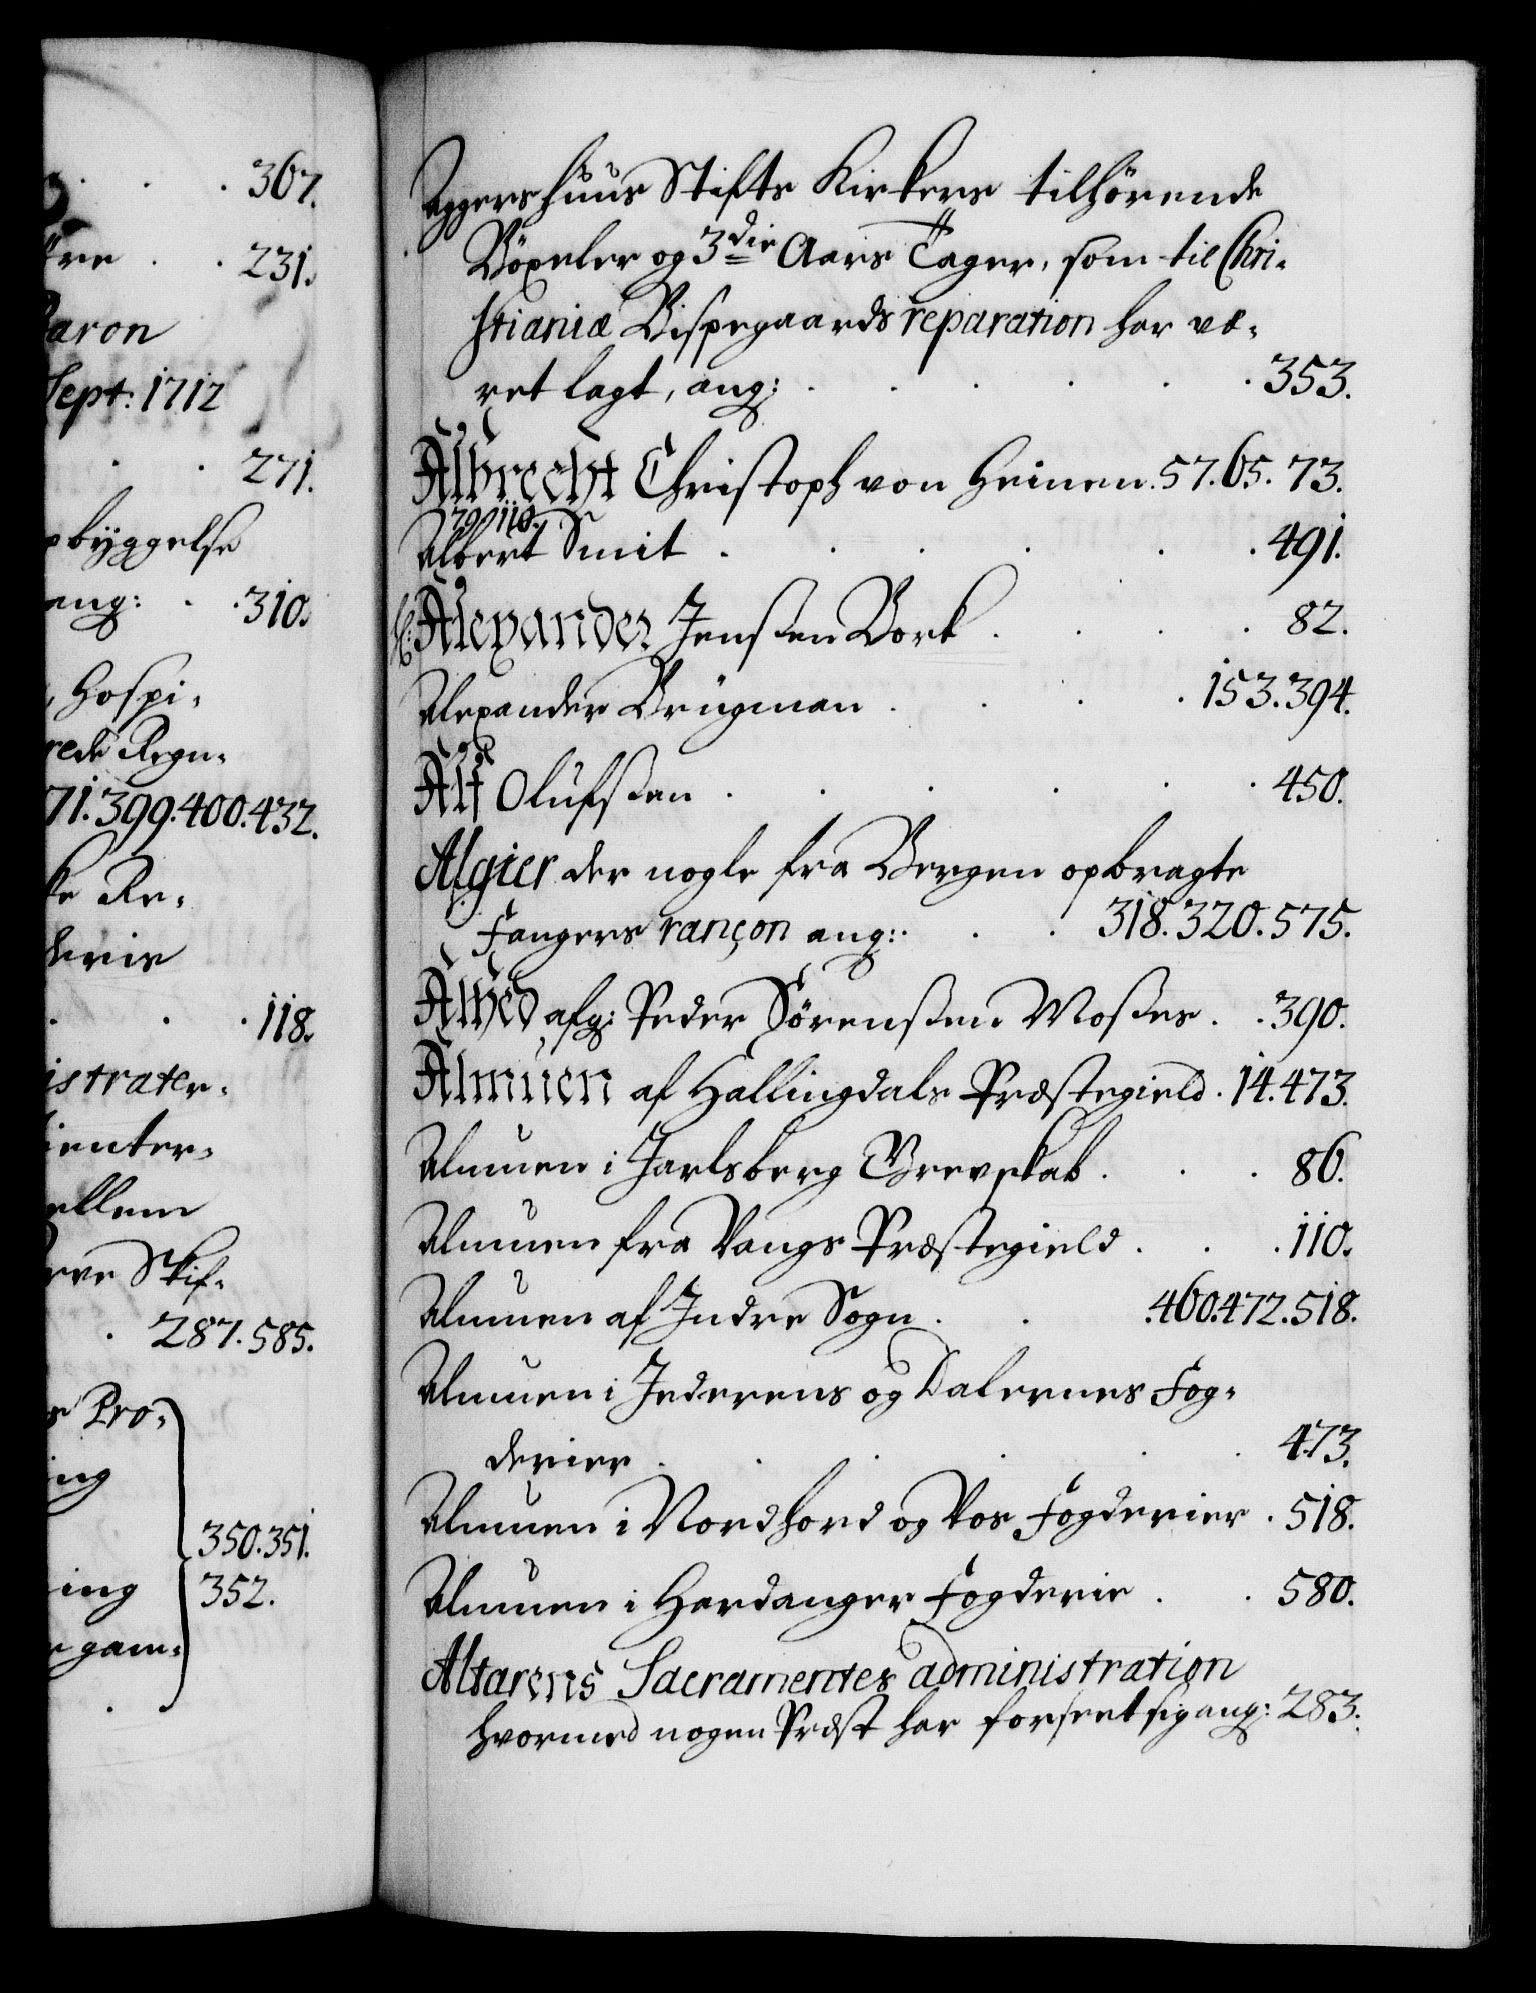 367.
231.
aron
Sept: 1712
271.
byggelse
ang: . . 310.
, Hospi-
rede Regn-
71. 399. 400. 432.
ke Re-
118.
istrater-
ienter-
ellem
rve Skif-
. 287. 585.
Pro-
ing
350. 351.
ing 352.
gam-
Aggershuus Stifts Kirkers tilhörende
Böxeler og 3die Aars Tager, som til Chri-
stianiæ Bispegaards reparation har væ-
ret lagt, ang: . . . . . . 353.
Albrecht Christoph von Heinen. 57. 65. 73.
79. 110.
Albert Smit . . . . . . 491.
Alexander Jenssen Bork . . . . 82.
Alexander Brügman . . . . 153. 394.
Alf Olüfssen . . . . . . 450.
Algier der nogle fra Bergen opbragte
Fangers rançon ang: . . 318. 320. 575.
Alhed, afg: Peder Sörenssen Mosses . . 390.
Almuen af Hallingdals Præstegield . 14. 473.
Almuen i Jarlsberg Grevskab . . . 86.
Almuen fra Vangs Præstegield . . . 110.
Almuen af Indre Sogn . . . 460. 472. 518.
Almuen i Jederens og Dalernes Fog-
derier . . . . . . 473.
Almuen i Nordhord og Vos Fogderier . 518.
Almuen i Hardanger Fogderie . . 580.
Altarens Sacramentes administration
hvormed nogen Præst har forseet sig ang: 283.